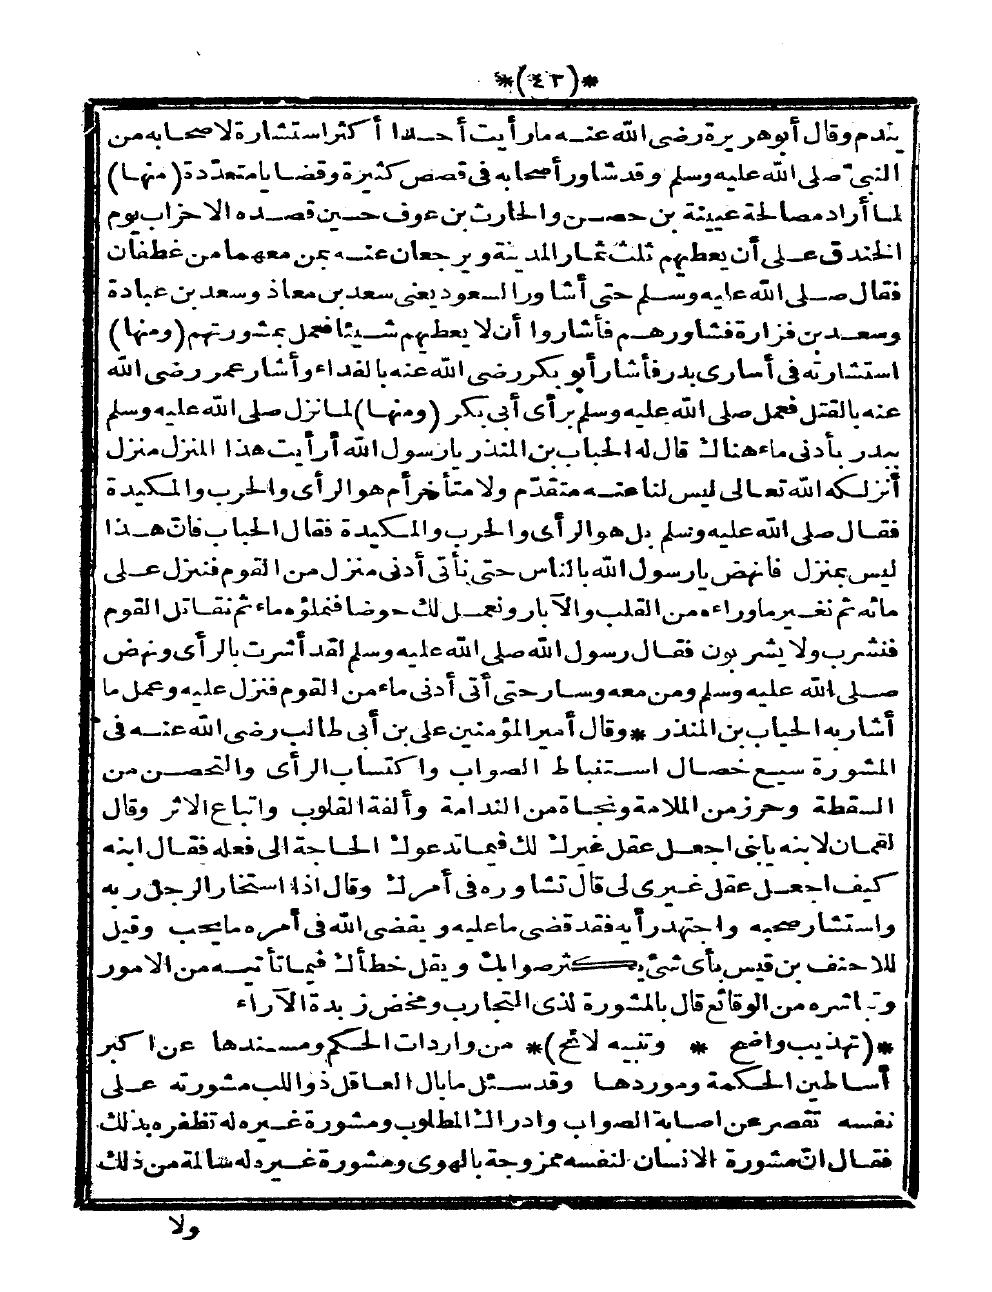 *(٤٢)*
يندم وقال أبو هريرة رضى الله عنه ما رأيت أحدا أكثر استشارة لاصحابه من
النبىّ صلى الله عليه وسلم وقد شاور أصحابه فى قصص كثيرة وقضايا متعدّدة (منها)
لما أراد مصالحة عيينة بن حصن والحارث بن عوف حين قصده الاحزاب يوم
الخندق على أن يعطيهم ثلث ثمار المدينة ويرجعان عنه بمن معهما من غطفان
فقال صلى الله عليه وسلم حتى أشاور السعود يعنى سعد بن معاذ وسعد بن عبادة
وسعد بن فزارة فشاورهم فأشاروا أن لا يعطيهم شيئا فعمل بمشورتهم (ومنها)
استشارته فى أسارى بدر فأشار أبو بكر رضى الله عنه بالفداء وأشار عمر رضى الله
عنه بالقتل فعمل صلى الله عليه وسلم برأى أبى بكر (ومنها) لما نزل صلى الله عليه وسلم
ببدر بأدنى ماء هناك قال له الحباب بن المنذر يا رسول الله أرأيت هذا المنزل منزل
أنزلكه الله تعالى ليس لنا عنه متقدّم ولا متأخر أم هو الرأى والحرب والمكيدة
فقال صلى الله عليه وسلم بل هو الرأى والحرب والمكيدة فقال الحباب فانّ هذا
ليس بمنزل فانهض يا رسول الله بالناس حتى نأتى أدنى منزل من القوم فننزل على
مائه ثم نغير ما وراءه من القلب والآبار ونعمل لك حوضا فنملؤه ماء ثم نقاتل القوم
فنشرب ولا يشربون فقال رسول الله صلى الله عليه وسلم لقد أشرت بالرأى ونهض
صلى الله عليه وسلم ومن معه وسار حتى أتى أدنى ماء من القوم فنزل عليه وعمل ما
أشار به الحباب بن المنذر * وقال أمير المؤمنين على بن أبى طالب رضى الله عنه فى
المشورة سبع خصال استنباط الصواب واكتساب الرأى والتحصن من
السقطة وحرز من الملامة ونجاة من الندامة وألفة القلوب واتباع الاثر وقال
لقمان لابنه يا بنى اجعل عقل غيرك لك فيما تدعوك الحاجة الى فعله فقال ابنه
كيف اجعل عقل غيرى لى قال تشاوره فى أمرك وقال اذا استخار الرجل ربه
واستشار صحبه واجتهد رأيه فقد قضى ما عليه ويقضى الله فى أمره ما يحب وقيل
للاحنف بن قيس بأى شئ يكثر صوابك ويقل خطأك فيما تأتيه من الامور
وتباشره من الوقائع قال بالمشورة لذى التجارب ومخض زبدة الآراء
*(تهذيب واضح * وتنبيه لائح)* من واردات الحكم ومسندها عن اكبر
أساطين الحكمة وموردها وقد سئل ما بال العاقل ذو اللب مشورته على
نفسه تقصر عن اصابة الصواب وادراك المطلوب ومشورة غيره له تظفره بذلك
فقال انّ مشورة الانسان لنفسه ممزوجة بالهوى ومشورة غيره له سالمة من ذلك
ولا